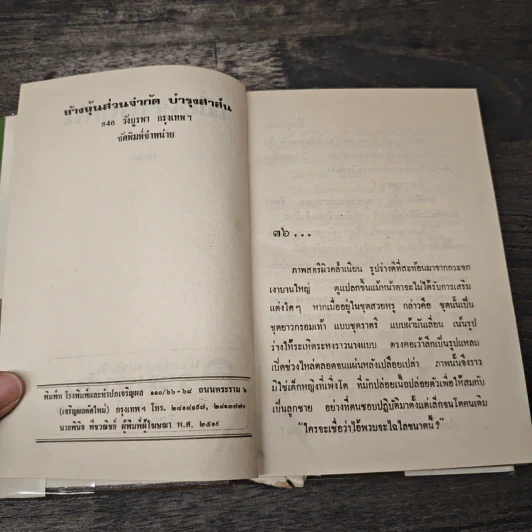 ห้างหุ้นส่วนจำกัด บำรุงสาส์น
๖๔๐ วังบูรพา กรุงเทพฯ
จัดพิมพ์จำหน่าย
พิมพ์ที่ โรงพิมพ์และทำปกเจริญผล ๑๑๐/๖๖-๖๘ ถนนพระราม ๖
(เจริญผลตึกใหม่) กรุงเทพฯ โทร.
นายพินิจ พืชวณิชย์ ผู้พิมพ์ผู้โฆษณา พ.ศ. ๒๕๑๙
๓๖...
ภาพสตรีผิวคล้ำเนียน รูปร่างดีที่สะท้อนมาจากกระจก
เงาบานใหญ่ ดูแปลกขึ้นแม้หน้าตาจะไม่ได้รับการเสริม
แต่งใดๆ หากเมื่ออยู่ในชุดสวยหรู กล่าวคือ ชุดนั้นเป็น
ชุดยาวกรอมเท้า แบบชุดราตรี แบบผ้ามันเลื่อน เน้นรูป
ร่างให้ระเหิดระหงราวนางแบบ ตรงคอเว้าลึกเป็นรูปแหลม
เปิดช่วงไหล่ตลอดจนแผ่นหลังเปลือยเปล่า ภาพนั้นจึงราว
มิใช่เด็กหญิงที่เพิ่งโต ที่มักปล่อยเนื้อปล่อยตัวเพื่อให้สมกับ
เป็นลูกชาย อย่างที่ตนชอบปฏิบัติมาตั้งแต่เล็กจนโตคนเดิม
"ใครจะเชื่อว่าไอ้พวบจะไฉไลขนาดนี้?"